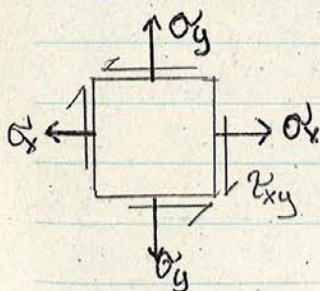 σy
σx σx
τxy
σy